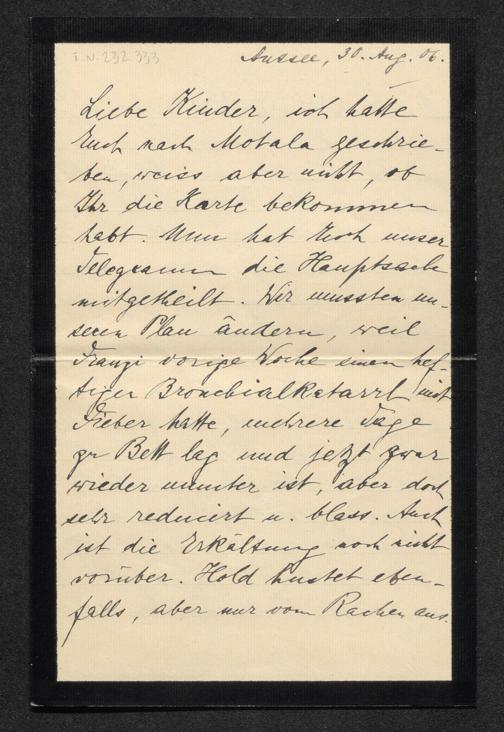 I.N. 232.333
Aussee, 30. Aug. 06.
Liebe Kinder, ich hatte
Euch nach Motala geschrie-
ben, weiss aber nicht, ob
Ihr die Karte bekommen
habt. Nun hat Euch unser
Telegramm die Hauptsache
mitgetheilt. Wir mussten un-
seren Plan ändern, weil
Franzi vorige Woche einen hef-
tigen Bronchialkatarrh mit
Fieber hatte, mehrere Tage
zu Bett lag und jetzt zwar
wieder munter ist, aber doch
sehr reducirt u. blass. Auch
ist die Erkältung noch nicht
vorüber. Hold hustet eben-
falls, aber nur vom Rachen aus.